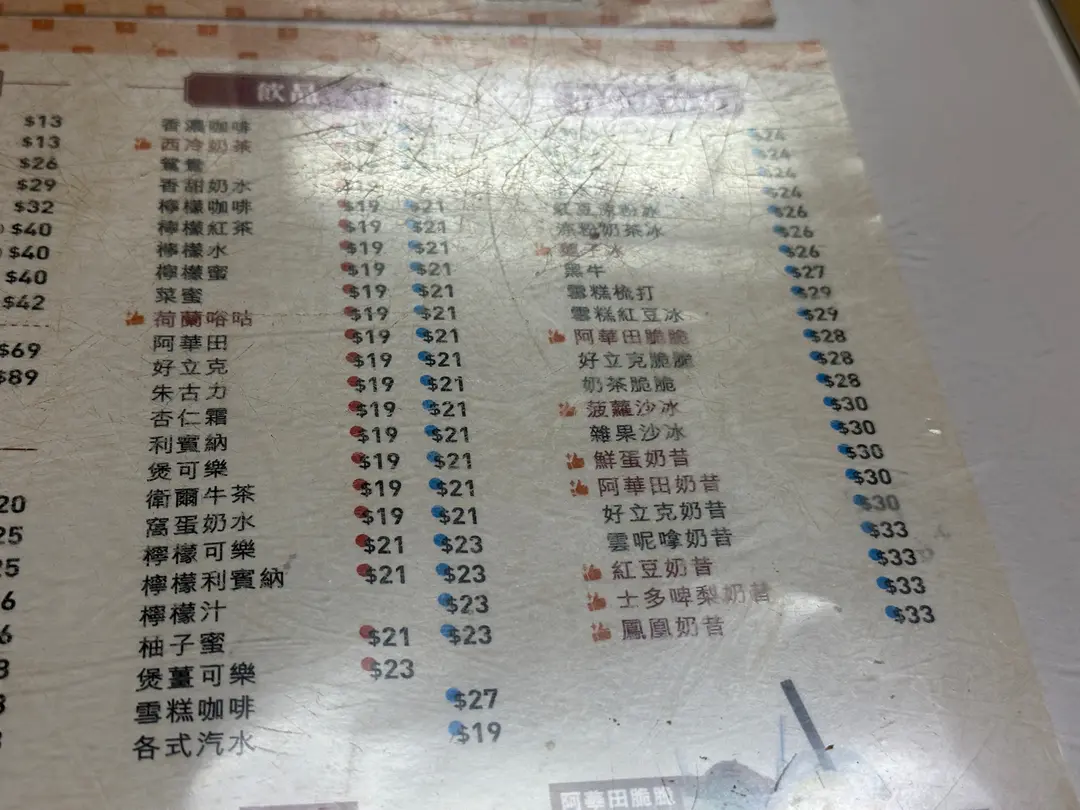 $13
$13
$26
$29
$32
$40
$40
$40
$42
$69
$89
飲品
香濃咖啡
西冷奶茶
鴛鴦
香甜奶水
檸檬咖啡 $19 $21
檸檬紅茶 $19 $21
檸檬水 $19 $21
檸檬蜜 $19 $21
菜蜜 $19 $21
荷蘭唂咕 $19 $21
阿華田 $19 $21
好立克 $19 $21
朱古力 $19 $21
杏仁霜 $19 $21
利賓納 $19 $21
煲可樂 $19 $21
衛爾牛茶 $19 $21
窩蛋奶水 $19 $21
檸檬可樂 $21 $23
檸檬利賓納 $21 $23
檸檬汁 $23
柚子蜜 $21 $23
煲薑可樂 $23
雪糕咖啡 $27
各式汽水 $19
$24
$24
$24
$24
紅豆涼粉冰 $26
涼粉奶茶冰 $26
子冰 $26
黑牛 $27
雪糕梳打 $29
雪糕紅豆冰 $29
阿華田脆脆 $28
好立克脆脆 $28
奶茶脆脆 $28
菠蘿沙冰 $30
雜果沙冰 $30
鮮蛋奶昔 $30
阿華田奶昔 $30
好立克奶昔 $30
雲呢嗱奶昔 $33
紅豆奶昔 $33
士多啤梨奶昔 $33
鳳凰奶昔 $33
阿華田脆脆